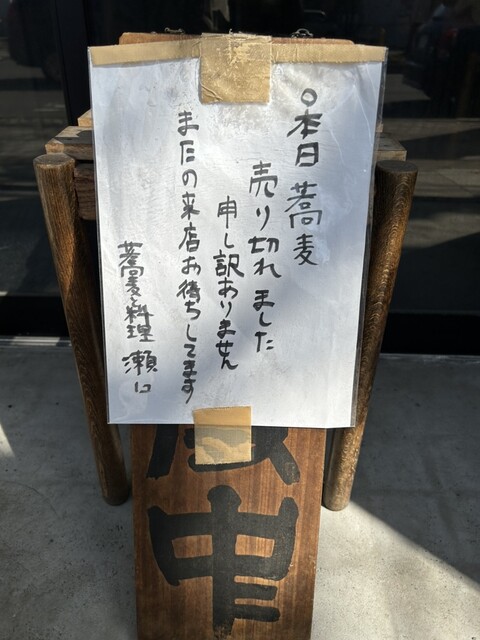 本日蕎麦
売り切れました
申し訳ありません
またの来店お待ちしてます
蕎麦料理 瀬口
中